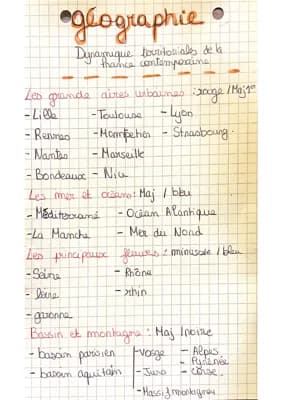 géographie
Dynamique territoriales de la
france contemporaine
Les grande aires urbaines : rouge / Maj
- Lille - Toulouse - Lyon
- Rennes - Montpellier - Strasbourg.
- Nantes - Marseille
- Bordeaux - Nice
Les mer et océans : Maj / bleu
- Méditerrané - Océan Atlantique
- La Manche - Mer du Nord
Les principaux fleuves : minuscule / bleu
- Seine - Rhône
- loire - rhin
- garonne
Bassin et montagne : Maj / noire
- bassin parisien - vosge - Alpes
- bassin aquitain - Jura - Pyrénée
- Corse.
- Massif montagneu